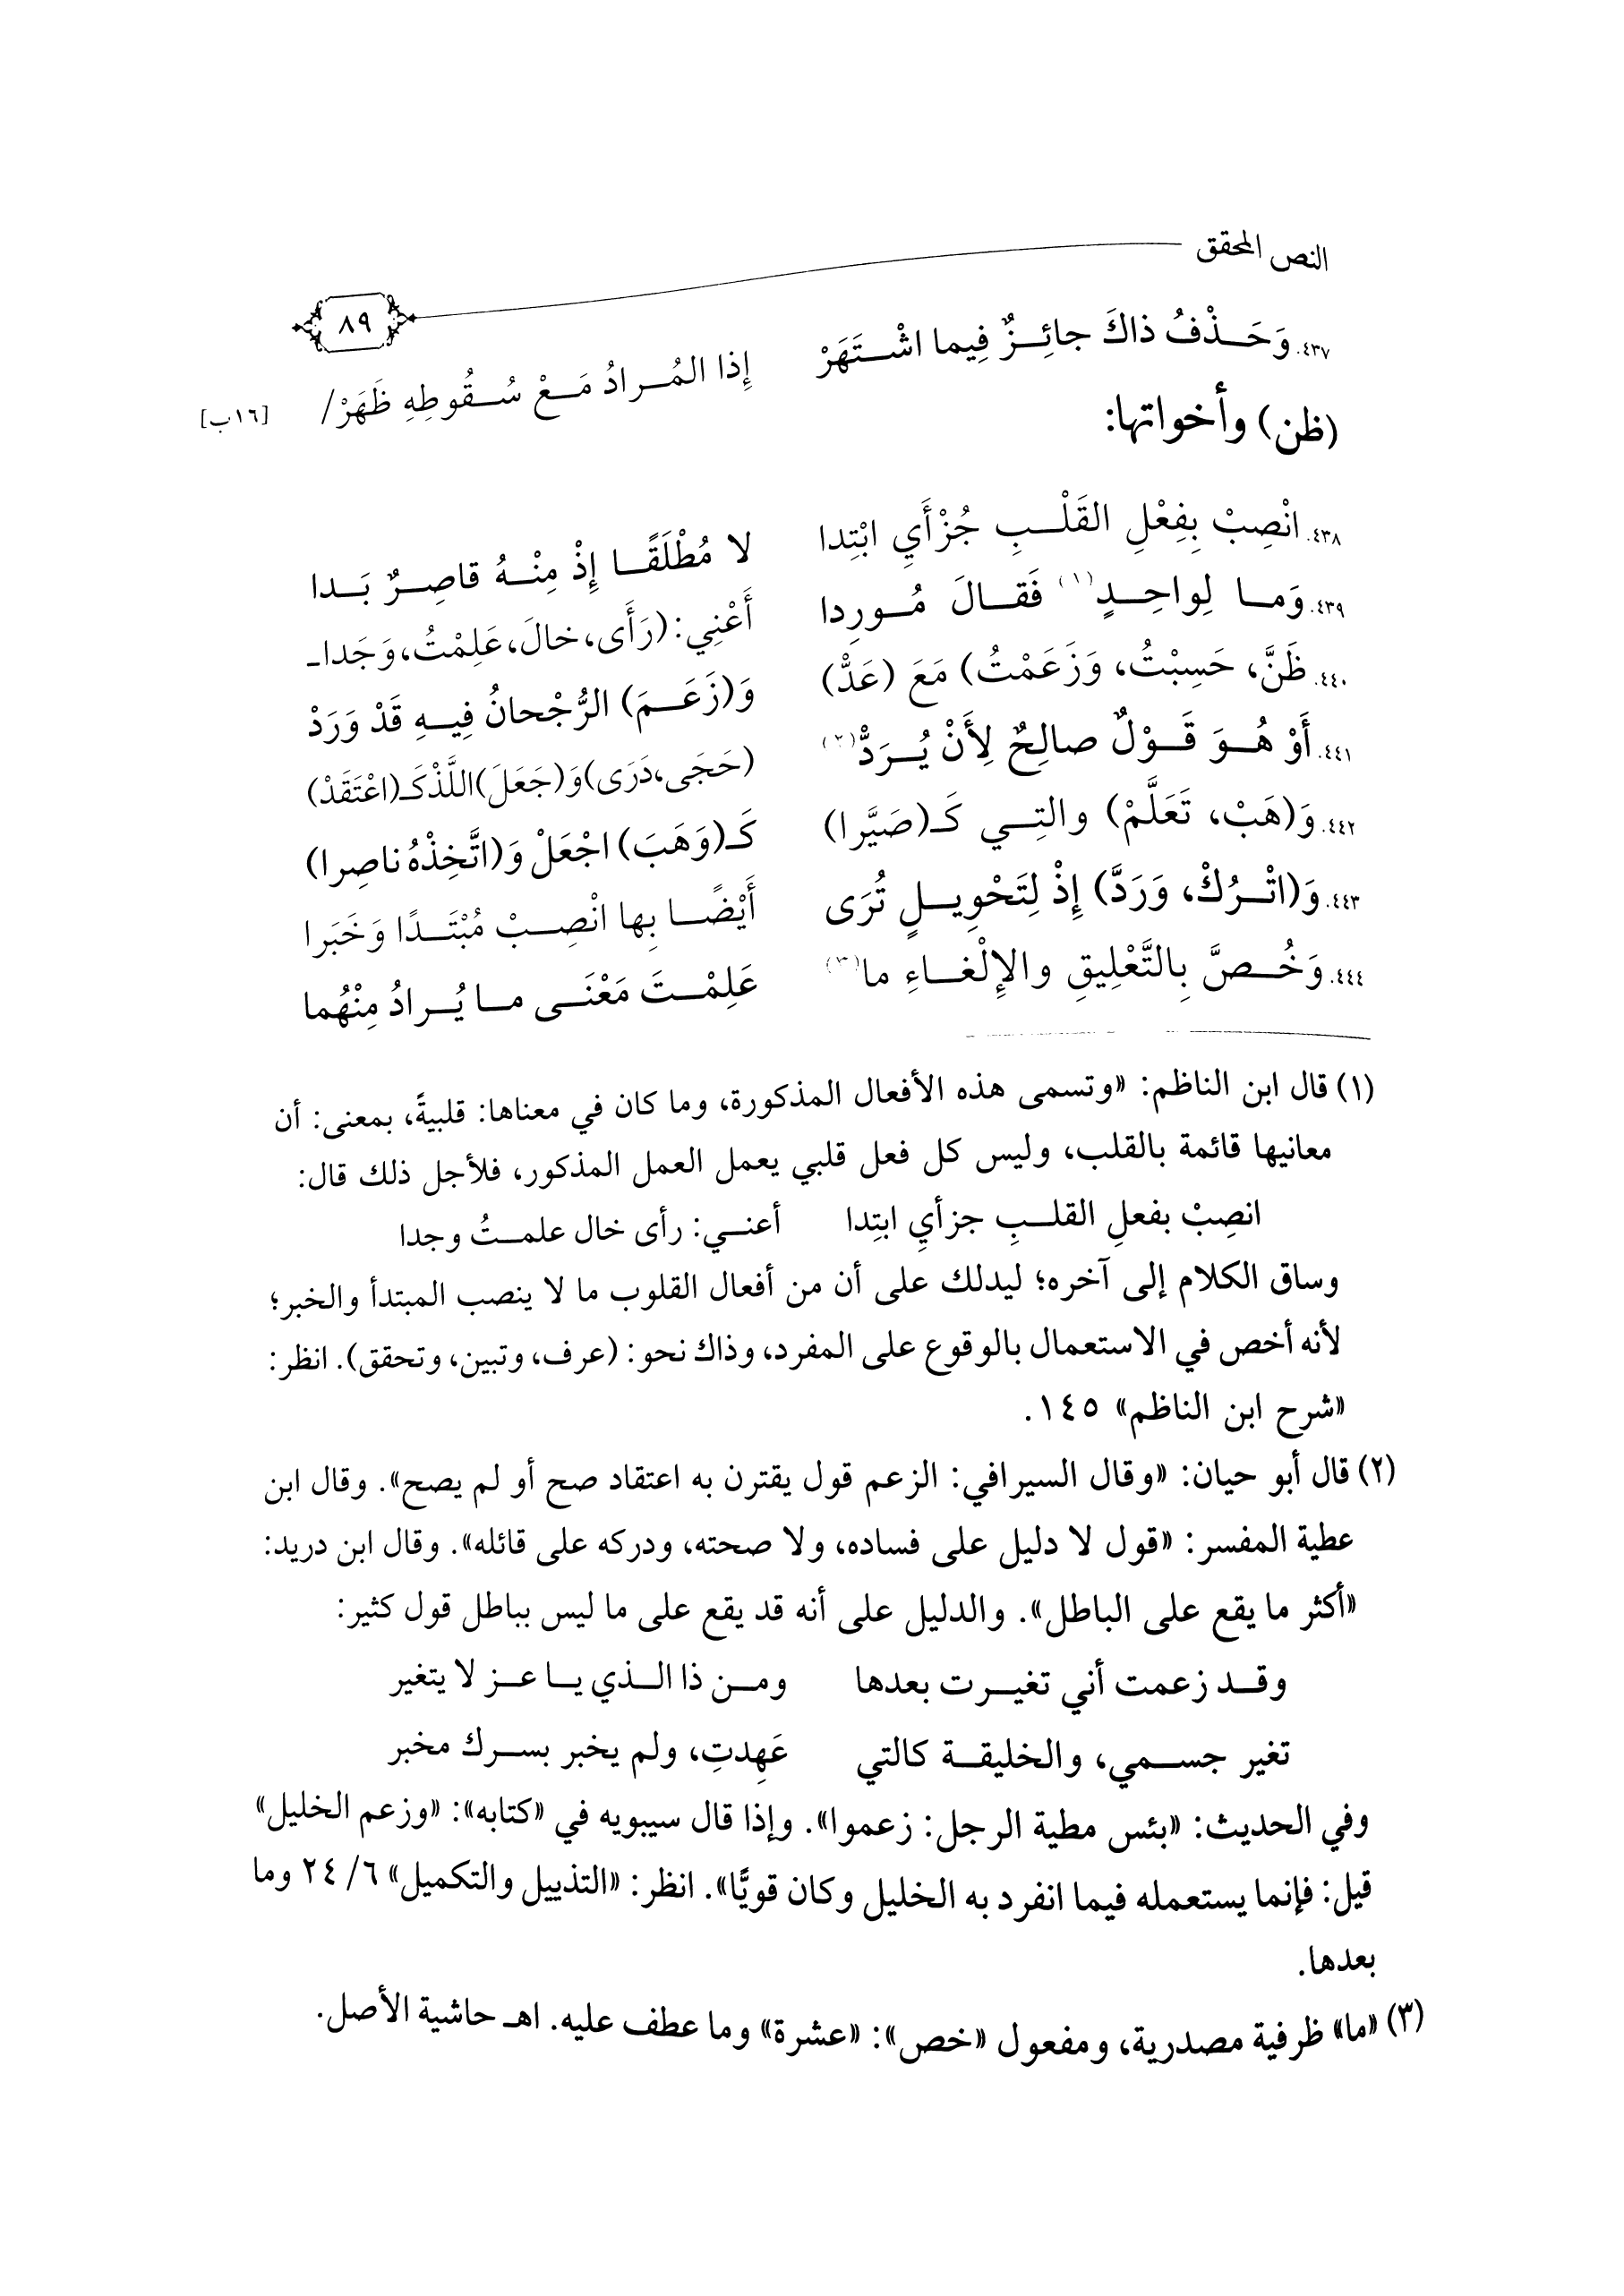 النص المحقق
٨٩
٤٣٧. وَحَـذْفُ ذاكَ جائِـزٌ فِيما اشْـتَهَرْ إِذا المُـرادُ مَـعْ سُـقُوطِهِ ظَهَرْ/ [١٦ب]
(ظن) وأخواتها:
٤٣٨. انْصِبْ بِفِعْلِ القَلْـبِ جُزْأَيِ ابْتِدا لا مُطْلَقًـا إِذْ مِنْـهُ قاصِـرٌ بَـدا
٤٣٩. وَمـا لِواحِـدٍ(١) فَقـالَ مُـورِدا أَعْنِي: (رَأَى، خالَ، عَلِمْتُ، وَجَداـ
٤٤٠. ظَنَّ، حَسِبْتُ، وَزَعَمْتُ) مَعَ (عَدّْ) وَ(زَعَـمَ) الرُّجْحانُ فِيـهِ قَدْ وَرَدْ
٤٤١. أَوْ هُـوَ قَـوْلٌ صالِحٌ لِأَنْ يُـرَدّْ(٢) (حَجَى، دَرَى) وَ(جَعَلَ) اللَّذْ كَـ(اعْتَقَدْ)
٤٤٢. وَ(هَبْ، تَعَلَّمْ) والتِـي كَـ(صَيَّرا) كَـ(وَهَبَ) اجْعَلْ وَ(اتَّخِذْهُ ناصِرا)
٤٤٣. وَ(اتْـرُكْ، وَرَدَّ) إِذْ لِتَحْوِيـلٍ تُرَى أَيْضًـا بِها انْصِـبْ مُبْتَـدًا وَخَبَرا
٤٤٤. وَخُـصَّ بِالتَّعْلِيقِ والإِلْغـاءِ ما(٣) عَلِمْـتَ مَعْنَـى مـا يُـرادُ مِنْهُما
(١) قال ابن الناظم: «وتسمى هذه الأفعال المذكورة، وما كان في معناها: قلبيةً، بمعنى: أن
معانيها قائمة بالقلب، وليس كل فعل قلبي يعمل العمل المذكور، فلأجل ذلك قال:
انصِبْ بفعلِ القلـبِ جزأيِ ابتِدا أعنـي: رأى خال علمـتُ وجدا
وساق الكلام إلى آخره؛ ليدلك على أن من أفعال القلوب ما لا ينصب المبتدأ والخبر؛
لأنه أخص في الاستعمال بالوقوع على المفرد، وذاك نحو: (عرف، وتبين، وتحقق). انظر:
«شرح ابن الناظم» ١٤٥.
(٢) قال أبو حيان: «وقال السيرافي: الزعم قول يقترن به اعتقاد صح أو لم يصح». وقال ابن
عطية المفسر: «قول لا دليل على فساده، ولا صحته، ودركه على قائله». وقال ابن دريد:
«أكثر ما يقع على الباطل». والدليل على أنه قد يقع على ما ليس بباطل قول كثير:
وقـد زعمت أني تغيـرت بعدها ومـن ذا الـذي يـا عـز لا يتغير
تغير جسـمي، والخليقـة كالتي عَهِدتِ، ولم يخبر بسـرك مخبر
وفي الحديث: «بئس مطية الرجل: زعموا». وإذا قال سيبويه في «كتابه»: «وزعم الخليل»
قيل: فإنما يستعمله فيما انفرد به الخليل وكان قويًّا». انظر: «التذييل والتكميل» ٦/ ٢٤ وما
بعدها.
(٣) «ما» ظرفية مصدرية، ومفعول «خص»: «عشرة» وما عطف عليه. اهـ حاشية الأصل.